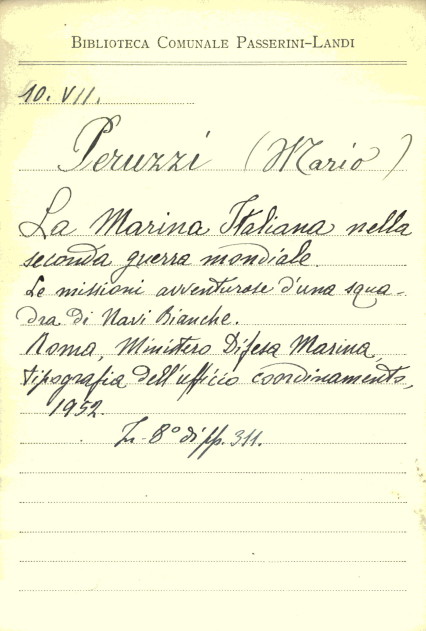 BIBLIOTECA COMUNALE PASSERINI-LANDI
10. VII.
Peruzzi (Mario)
La Marina Italiana nella
seconda guerra mondiale.
Le missioni avventurose d'una squa-
dra di Navi Bianche.
Roma, Ministero Difesa Marina,
tipografia dell'ufficio coordinamento,
1952.
In-8° di pp. 311.